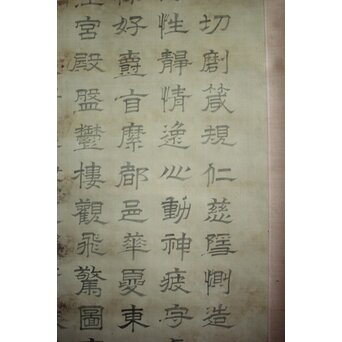 切劘箴規仁慈隱惻造
性靜情逸心動神疲守
好爵自縻都邑華夏東
宮殿盤鬱樓觀飛驚圖